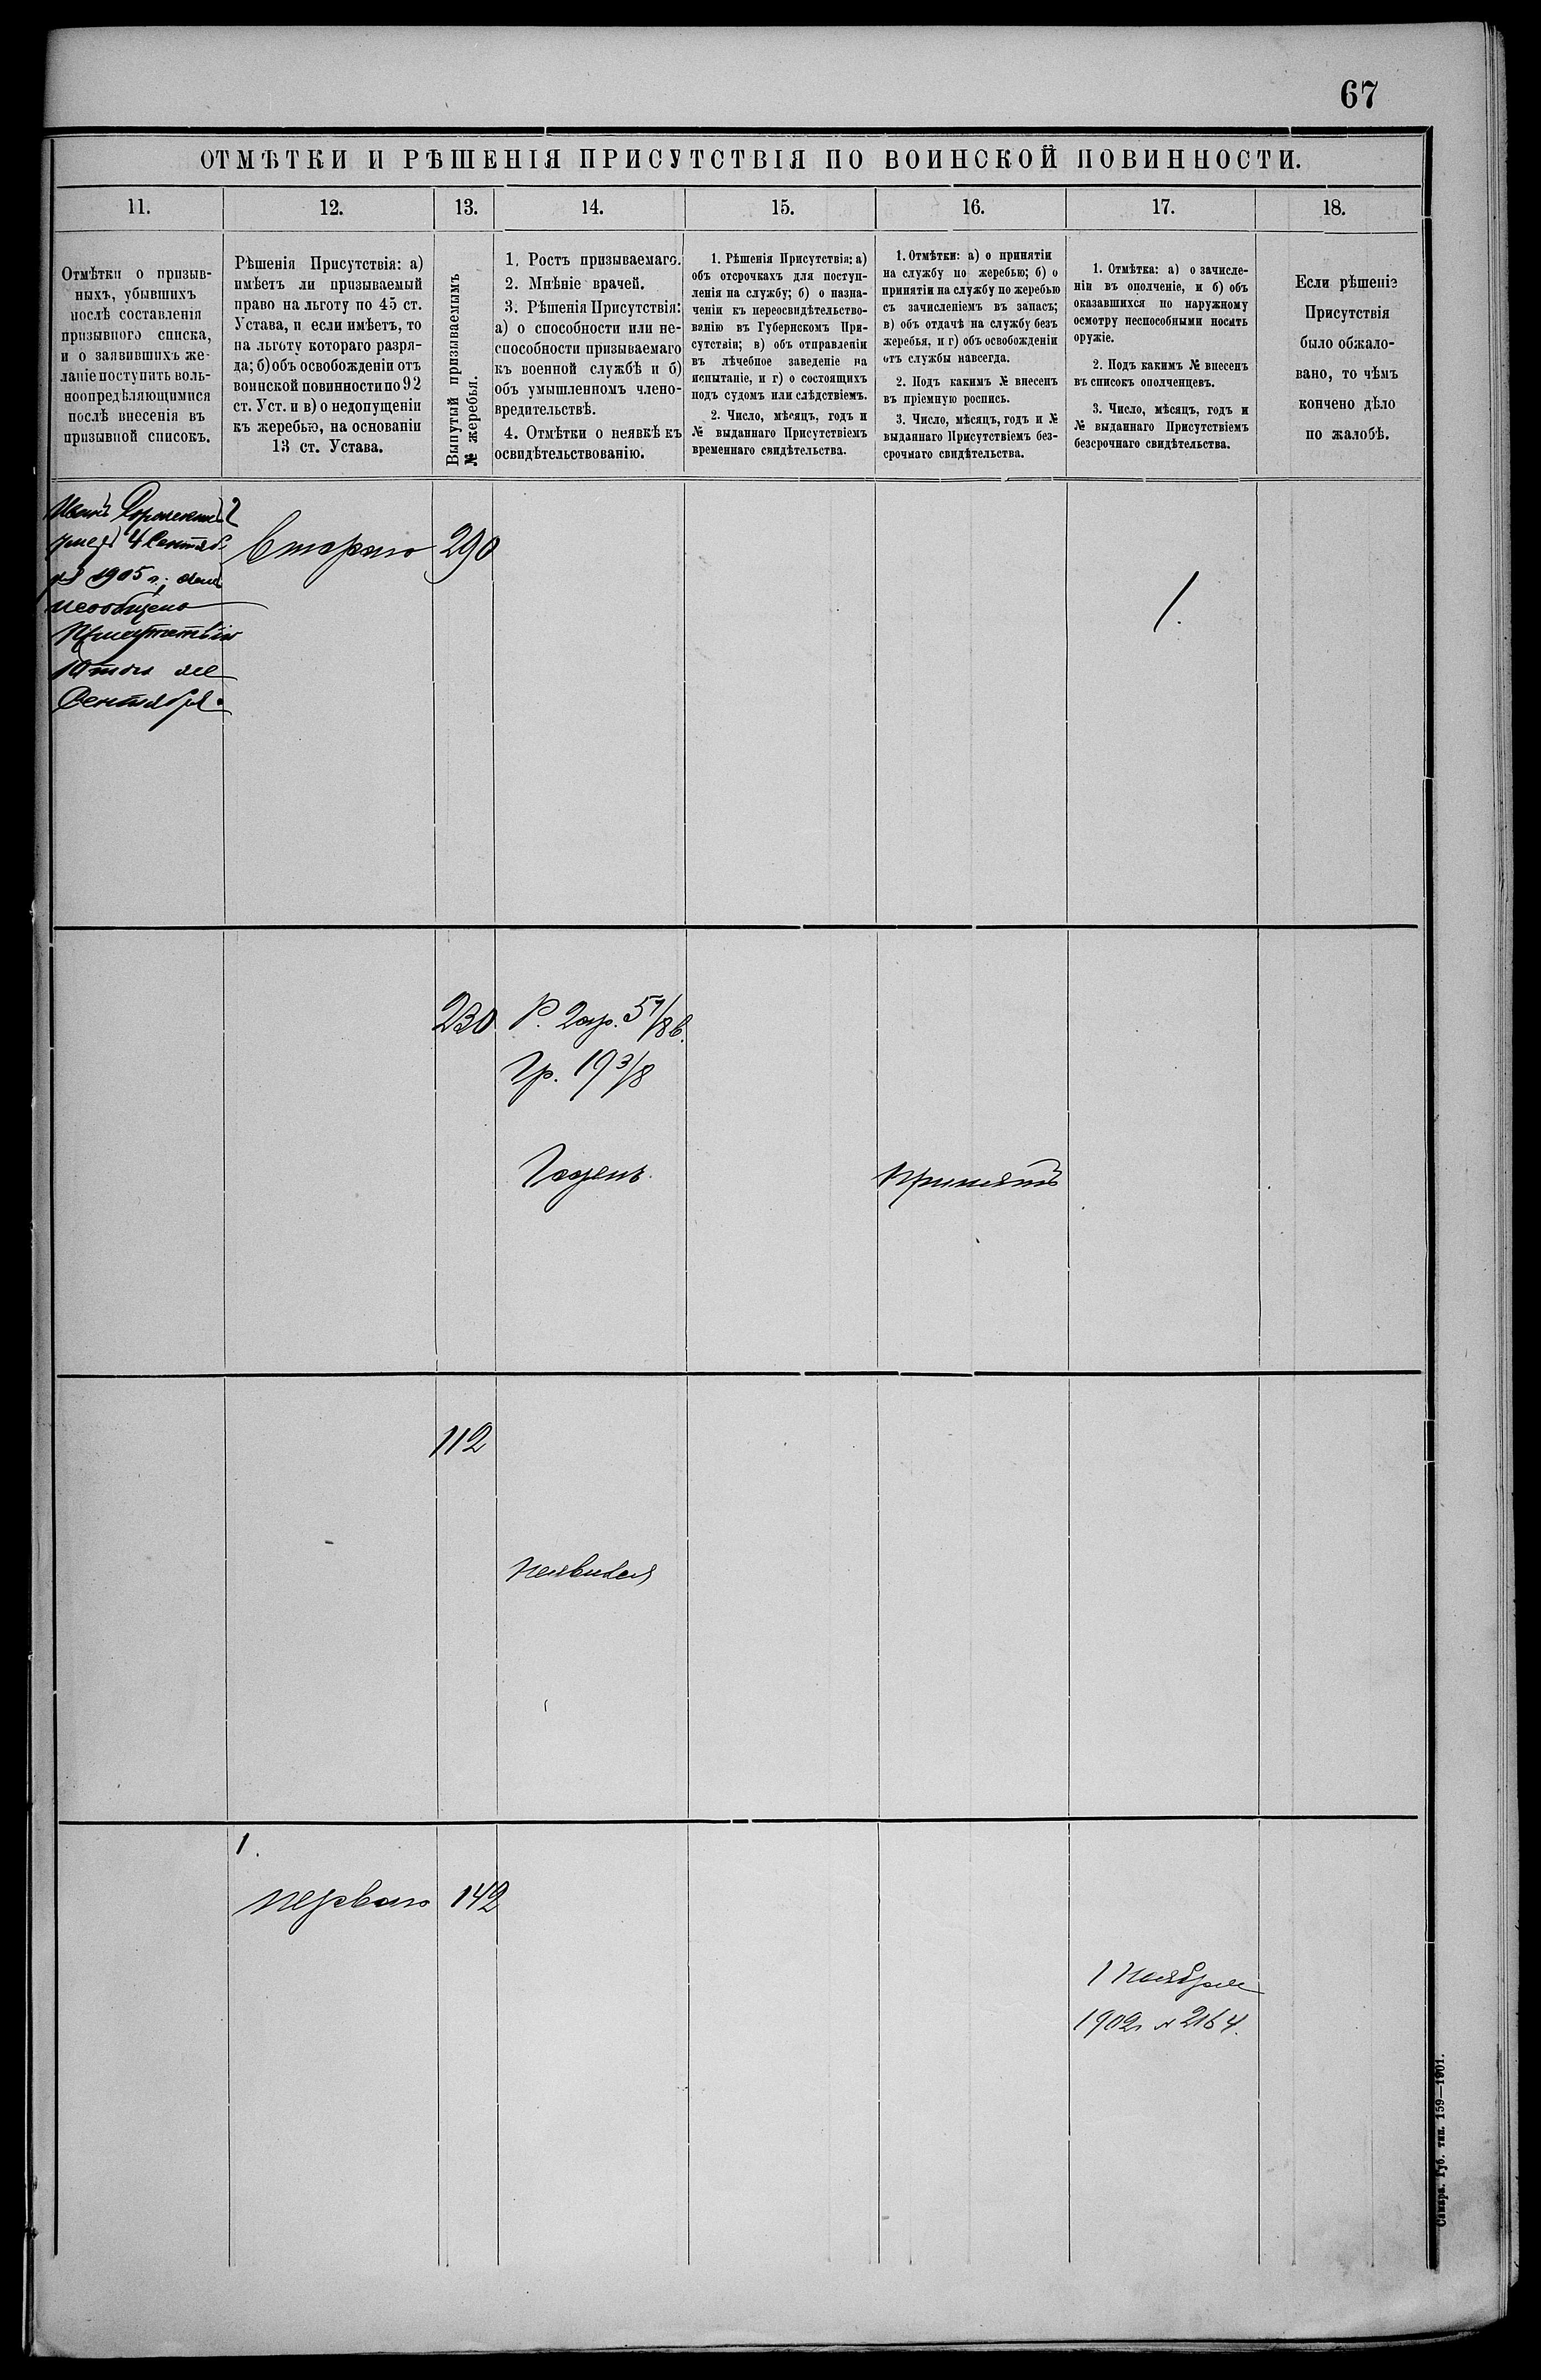 67
ОТМѢТКИ И РѢШЕНІЯ ПРИСУТСТВІЯ ПО ВОИНСКОЙ ПОВИННОСТИ.
11.
12.
13.
14.
15.
16.
17.
18.
Отмѣтки о призыв-
ныхъ, убывшихъ
послѣ составленія
призывного списка,
и о заявившихъ же-
ланіе поступить воль-
ноопредѣляющимися
послѣ внесенія въ
призывной списокъ.
Рѣшенія Присутствія: а)
имѣетъ ли призываемый
право на льготу по 45 ст.
Устава, и если имѣетъ, то
на льготу котораго разря-
да; б) объ освобожденіи отъ
воинской повинности по 92
ст. Уст. и в) о недопущеніи
къ жеребью, на основаніи
13 ст. Устава.
Вынутый призываемымъ
№ жеребья.
1. Ростъ призываемаго.
2. Мнѣніе врачей.
3. Рѣшенія Присутствія:
а) о способности или не-
способности призываемаго
къ военной службѣ и б)
объ умышленномъ члено-
вредительствѣ.
4. Отмѣтки о неявкѣ къ
освидѣтельствованію.
1. Рѣшенія Присутствія: а)
объ отсрочкахъ для поступ-
ленія на службу; б) о назна-
ченіи къ переосвидѣтельство-
ванію въ Губернскомъ При-
сутствіи; в) объ отправленіи
въ лѣчебное заведеніе на
испытаніе, и г) о состоящихъ
подъ судомъ или слѣдствіемъ.
2. Число, мѣсяцъ, годъ и
№ выданнаго Присутствіемъ
временнаго свидѣтельства.
1. Отмѣтки: а) о принятіи
на службу по жеребью; б) о
принятіи на службу по жеребью
съ зачисленіемъ въ запасъ;
в) объ отдачѣ на службу безъ
жеребья, и г) объ освобожденіи
отъ службы навсегда.
2. Подъ какимъ № внесенъ
въ пріемную роспись.
3. Число, мѣсяцъ, годъ и №
выданнаго Присутствіемъ без-
срочнаго свидѣтельства.
1. Отмѣтка: а) о зачисле-
ніи въ ополченіе, и б) объ
оказавшихся по наружному
осмотру неспособными носить
оружіе.
2. Подъ какимъ № внесенъ
въ списокъ ополченцевъ.
3. Число, мѣсяцъ, годъ и
№ выданнаго Присутствіемъ
безсрочнаго свидѣтельства.
Если рѣшеніе
Присутствія
было обжало-
вано, то чѣмъ
кончено дѣло
по жалобѣ.
Иванъ
умеръ 4 Сентяб
ря 1905 г.;
Присутствію
10 того же
Сентября.
2
Втораго
290
1.
230
Р. 2 ар. 5 7/8 в.
Гр. 19 3/8
Годенъ.
Принятъ
112
неявился
1.
перваго
142
1 Ноября
1902 г № 2164.
Самара. Губ. тип. 159—1901.